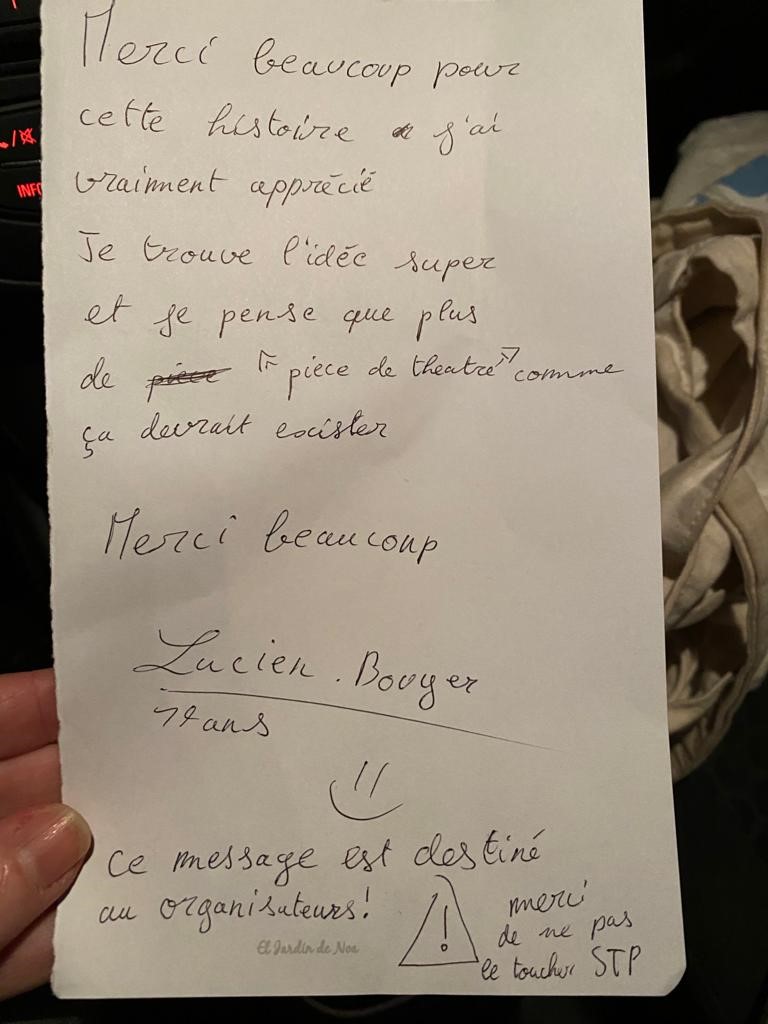 Merci beaucoup pour
cette histoire j'ai
vraiment apprécié
Je trouve l'idée super
et je pense que plus
de pièce "pièce de theatre" comme
ça devrait exister
Merci beaucoup
Lucien. Bouyer
ans
ce message est destiné
au organisateurs!
! merci
de ne pas
le toucher STP
El Jardín de Noa
INFO